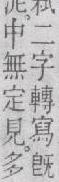 秖二字轉寫既
泥中無定見多